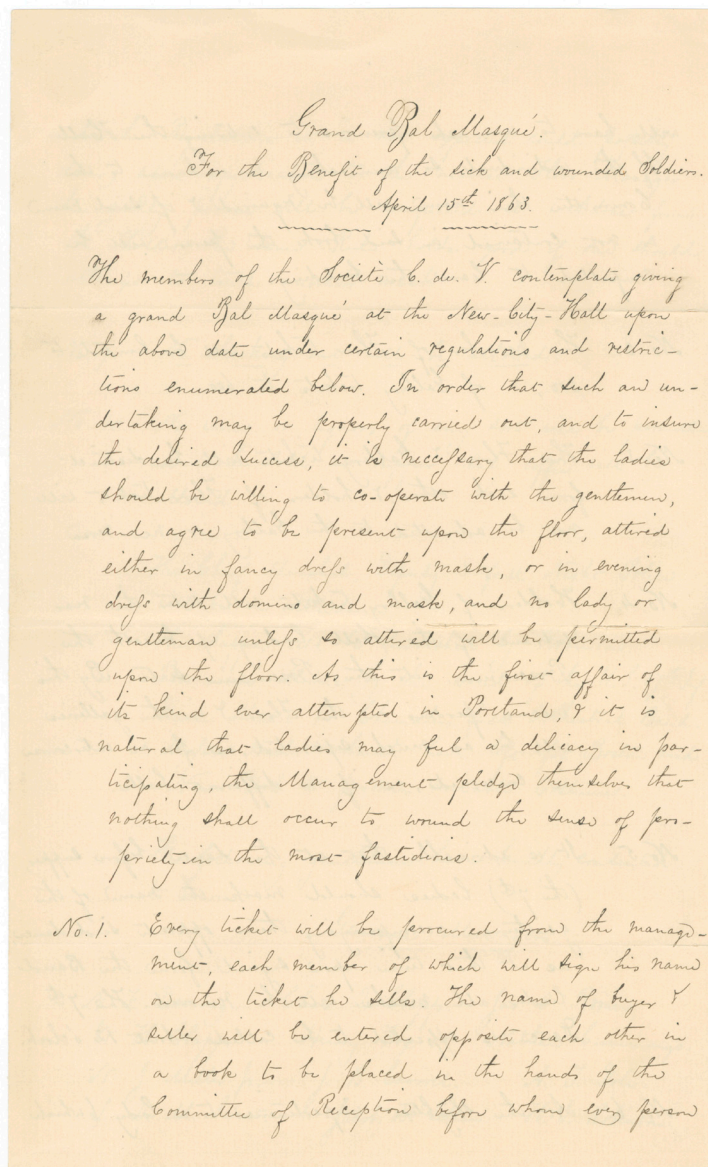 Grand Bal Masqué.
For the Benefit of the sick and wounded Soldiers.
April 15th 1863.
The members of the Societè C. de. V. contemplate giving
a grand Bal Masqué at the New-City-Hall upon
the above date under certain regulations and restric-
tions enumerated below. In order that such an un-
dertaking may be properly carried out, and to insure
the desired success, it is neccessary that the ladies
should be willing to co-operate with the gentlemen,
and agree to be present upon the floor, attired
either in fancy dress with mask, or in evening
dress with domino and mask, and no lady or
gentleman unless so attired will be permitted
upon the floor. As this is the first affair of
its kind ever attempted in Portland, & it is
natural that ladies may feel a delicacy in par-
ticipating, the Management pledge themselves that
nothing shall occur to wound the sense of pro-
priety in the most fastidious.
No. 1. Every ticket will be procured from the manage-
ment, each member of which will sign his name
on the ticket he sells. The name of buyer &
seller will be entered opposite each other in
a book to be placed in the hands of the
Committee of Reception before whom every person